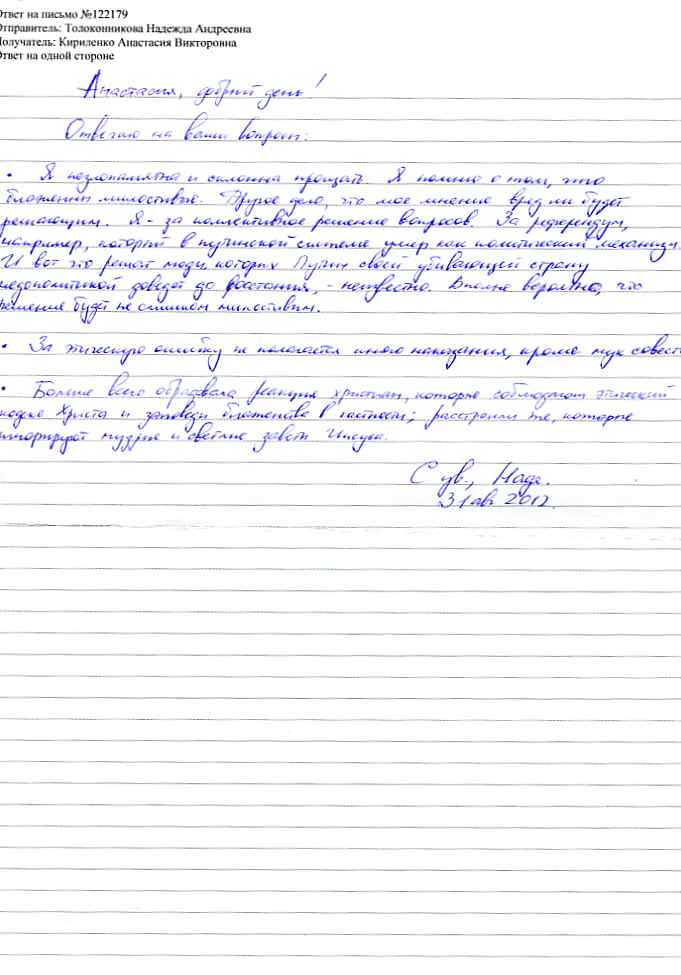 Ответ на письмо №122179
Отправитель: Толоконникова Надежда Андреевна
Получатель: Кириленко Анастасия Викторовна
Ответ на одной стороне
Анастасия, добрый день!
Отвечаю на ваши вопросы:
• Я незлопамятна и склонна прощать. Я помню о том, что
блаженны милостивые. Другое дело, что мое мнение вряд ли будет
решающим. Я - за коллективное решение вопросов. За референдум,
например, который в путинской системе умер как политический механизм.
И вот что решат люди, которых Путин своей убивающей страну
недополитикой доведет до восстания, - неизвестно. Вполне вероятно, что
решение будет не слишком милостивым.
• За этическую ошибку не полагается иного наказания, кроме мук совести
• Больше всего обрадовала реакция христиан, которые соблюдают этический
кодекс Христа и заповеди блаженства в частности; расстроили те, которые
игнорируют мудрые и светлые заветы Иисуса.
С ув., Надя.
31 авг 2012.